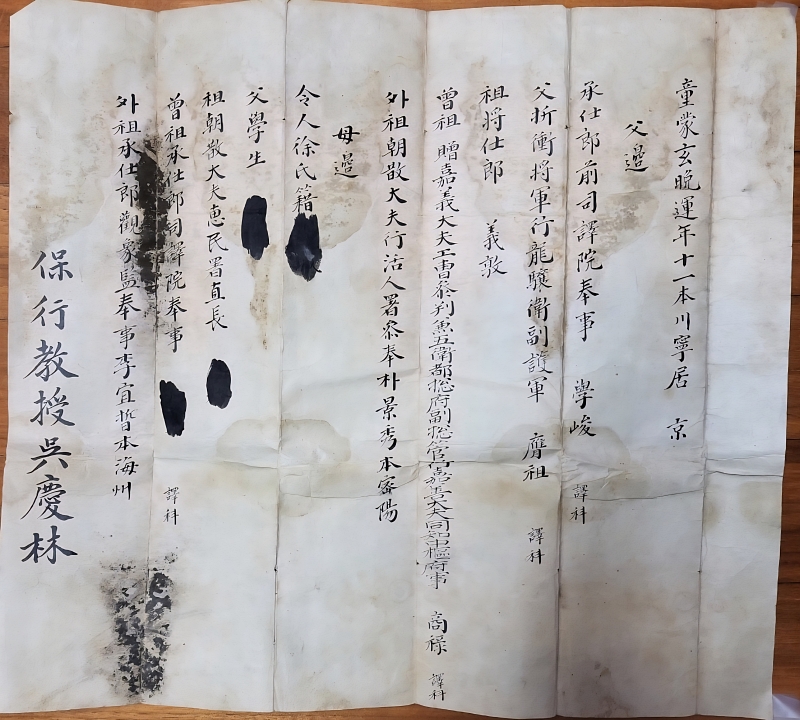 童蒙玄晩運年十一本川寧居 京
父邉
承仕郎前司譯院奉事 學峻 譯科
父折衝將軍行龍驤衛副護軍 膺祖 譯科
祖將仕郎 義敦
曾祖 贈嘉義大夫工曹叅判兼五衛都捴府副捴管行嘉善大夫同知中樞府事 商祿 譯科
外祖朝散大夫行活人署叅奉朴景秀本密陽
母邉
令人徐氏籍
父學生
祖朝散大夫惠民署直長
曾祖承仕郎司譯院奉事 譯科
外祖承仕郎觀象監奉事李宜晳本海州
保行教授吳慶林